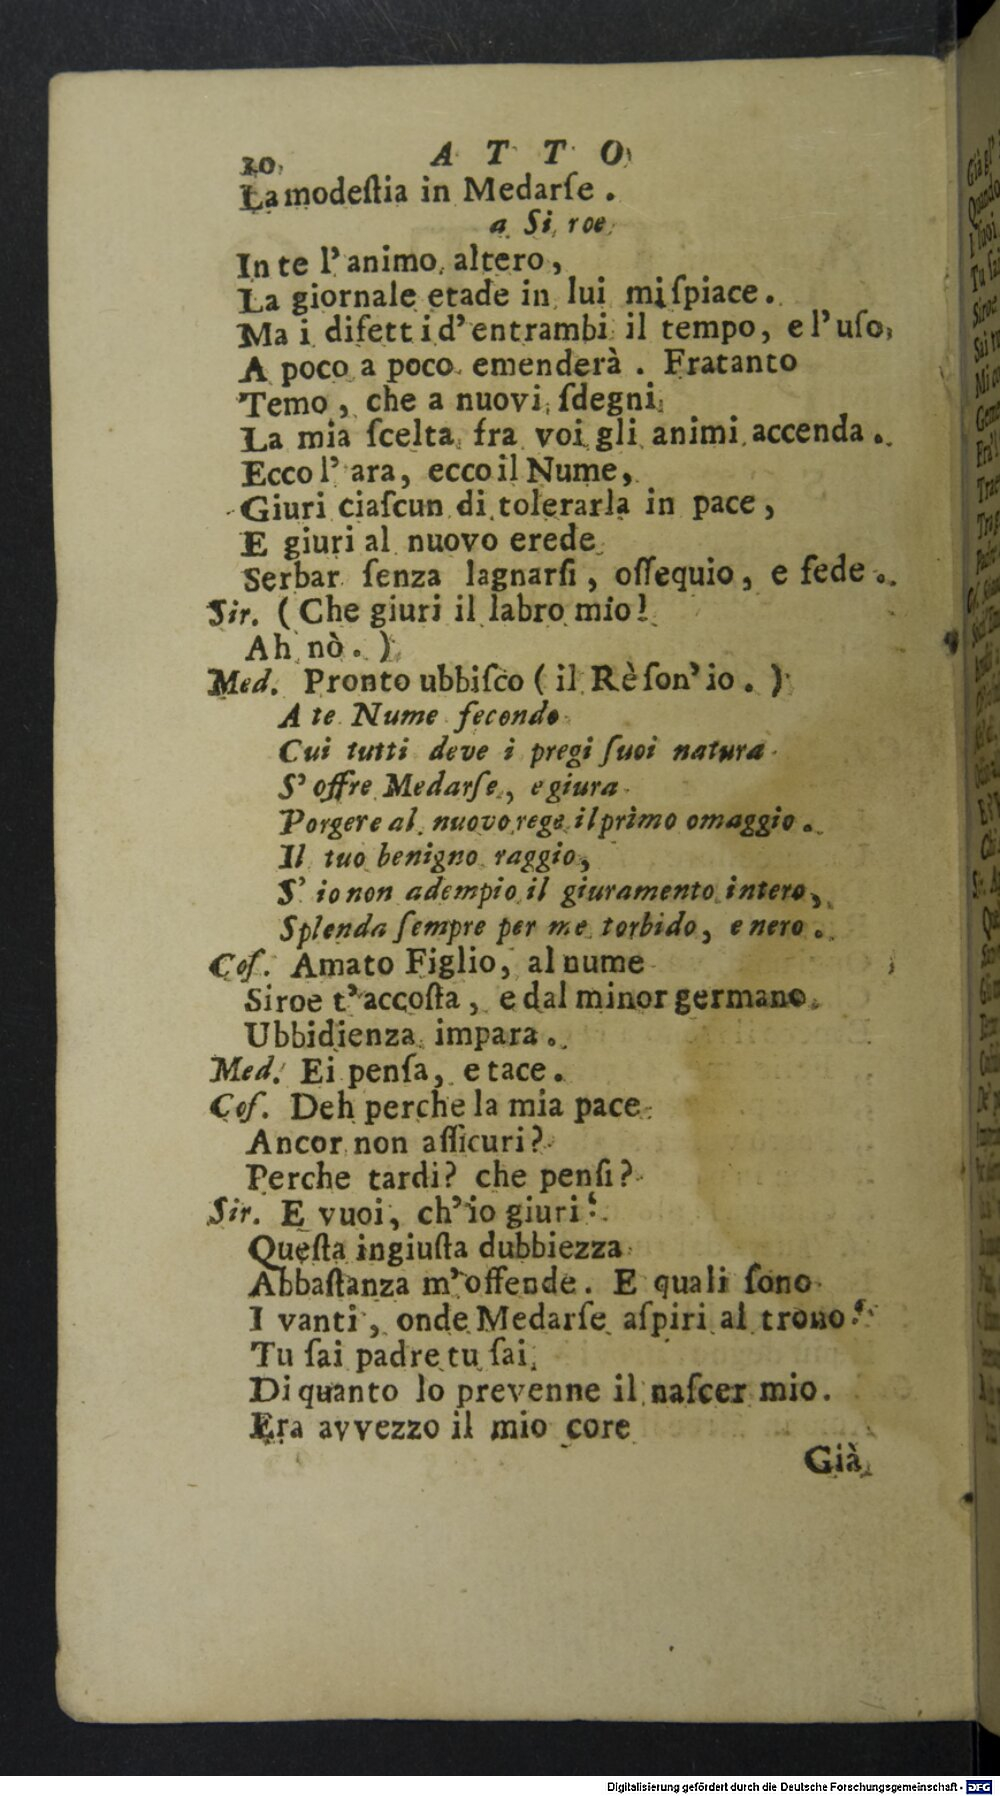 20 ATTO
La modeſtia in Medarſe .
a Siroe
In te l'animo altero ,
La giornale etade in lui mi ſpiace .
Ma i difetti d'entrambi il tempo, e l'uſo,
A poco a poco emenderà . Fratanto
Temo , che a nuovi ſdegni
La mia ſcelta fra voi gli animi accenda .
Ecco l'ara, ecco il Nume,
Giuri ciaſcun di tolerarla in pace ,
E giuri al nuovo erede
Serbar ſenza lagnarſi , oſſequio, e fede .
Sir. ( Che giuri il labro mio !
Ah nò . )
Med. Pronto ubbiſco ( il Rè ſon'io . )
A te Nume fecondo
Cui tutti deve i pregi ſuoi natura
S'offre Medarſe , e giura
Porgere al nuovo rege il primo omaggio .
Il tuo benigno raggio ,
S'io non adempio il giuramento intero ,
Splenda ſempre per me torbido , e nero .
Coſ. Amato Figlio, al nume
Siroe t'accoſta , e dal minor germano
Ubbidienza impara .
Med. Ei penſa, e tace .
Coſ. Deh perche la mia pace
Ancor non aſſicuri ?
Perche tardi ? che penſi ?
Sir. E vuoi, ch'io giuri ?
Queſta ingiuſta dubbiezza
Abbaſtanza m'offende . E quali ſono
I vanti , onde Medarſe aſpiri al trono ?
Tu ſai padre tu ſai
Di quanto lo prevenne il naſcer mio .
Era avvezzo il mio core
Già
Digitalisierung gefördert durch die Deutsche Forschungsgemeinschaft - DFG